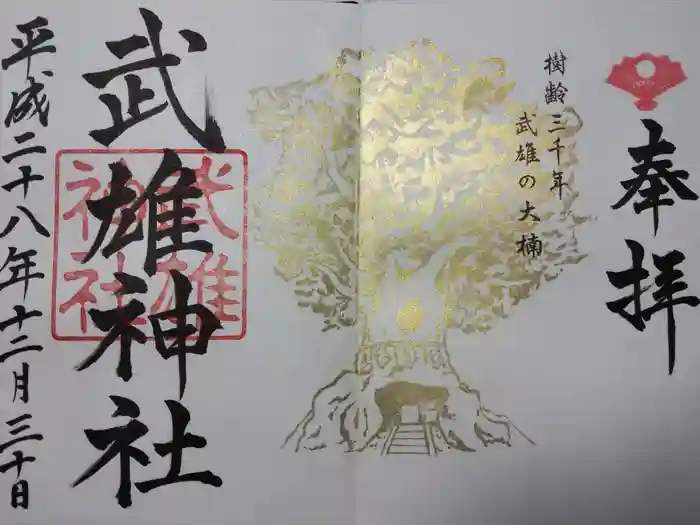 奉拝
樹齢三千年
武雄の大楠
武雄神社
武雄
神社
平成二十八年十二月三十日